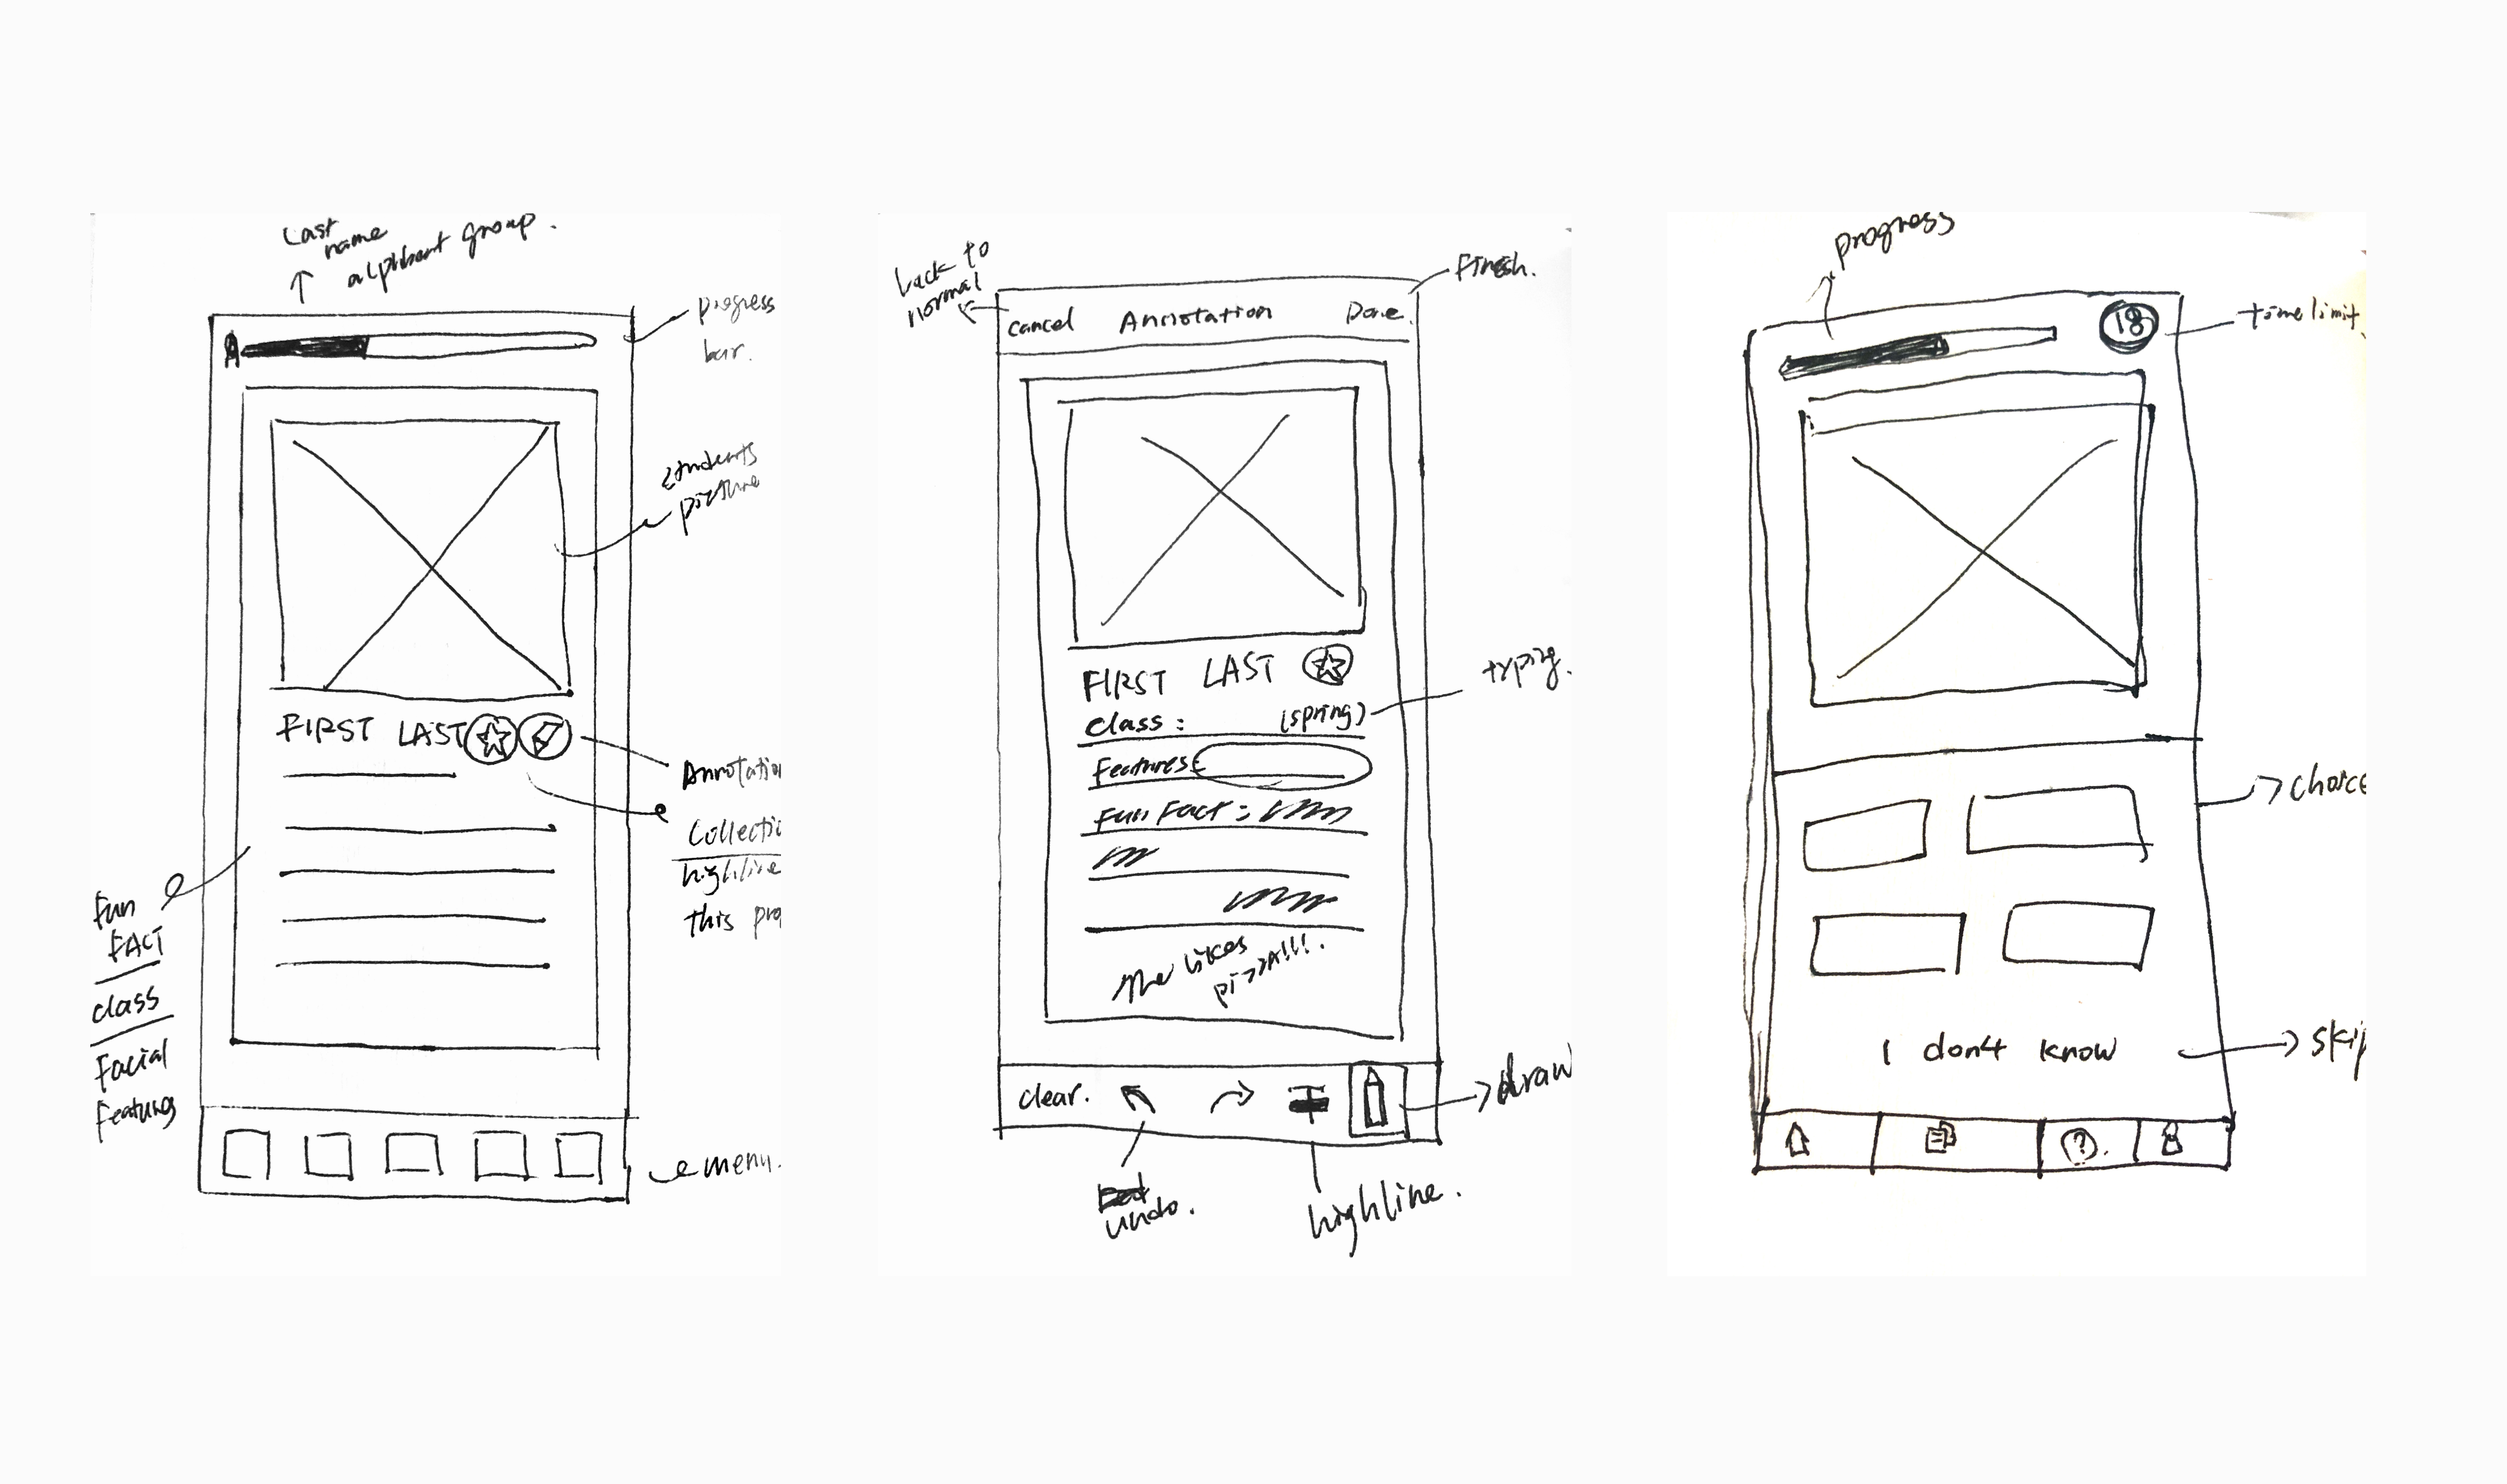 Last
name
alphbent group.
progress
bar.
A
students
picture
FIRST LAST
Annotation
Collectio
highline
this pro
Fun
FACT
class
Facial
Features
menu.
back to
normal
Finish.
Cancel Annotation Done.
FIRST LAST
typing.
Class: (spring)
Features:
Fun Fact:
likes
pizza!!!.
clear.
draw
undo.
highline.
progress
18
time limit
choice
I don't know
skip
?